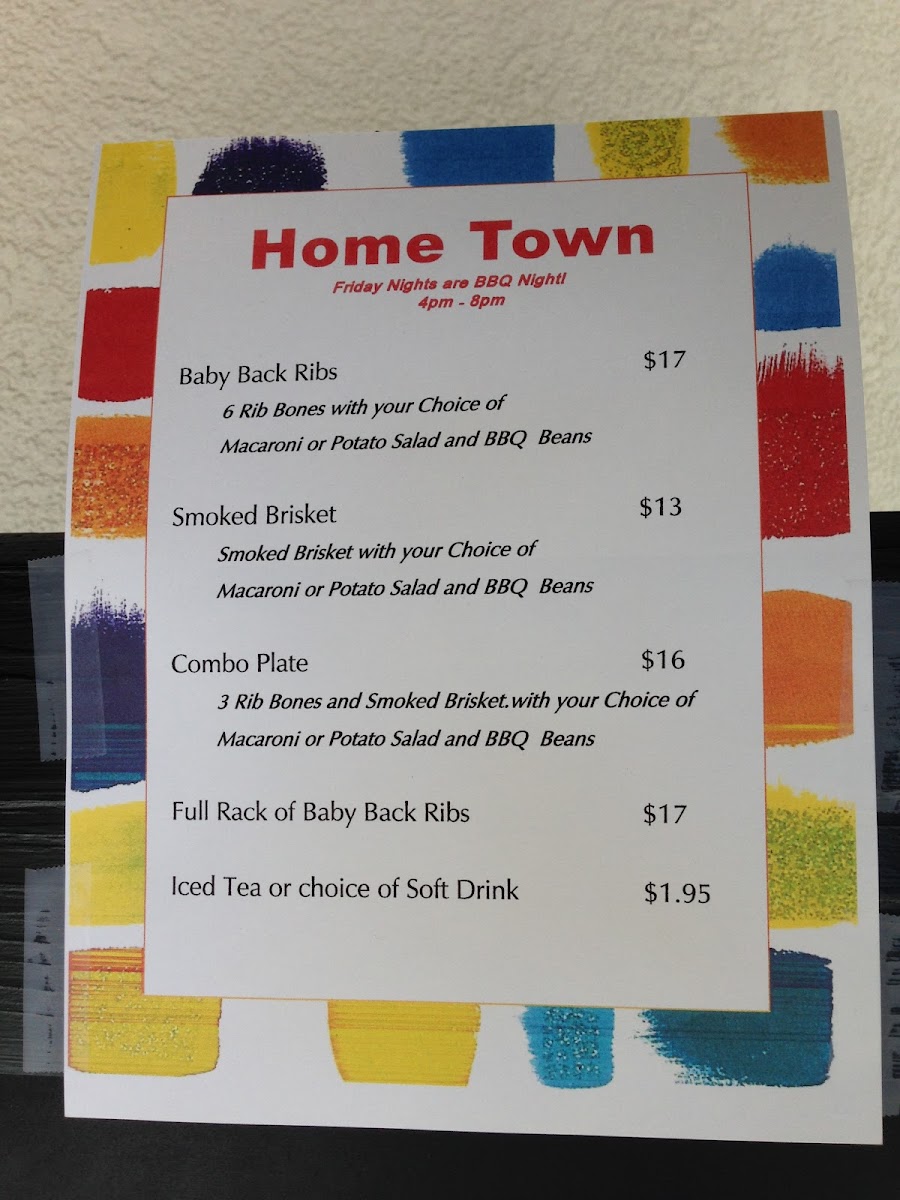 Home Town
Friday Nights are BBQ Night!
4pm - 8pm
Baby Back Ribs $17
6 Rib Bones with your Choice of
Macaroni or Potato Salad and BBQ Beans
Smoked Brisket $13
Smoked Brisket with your Choice of
Macaroni or Potato Salad and BBQ Beans
Combo Plate $16
3 Rib Bones and Smoked Brisket.with your Choice of
Macaroni or Potato Salad and BBQ Beans
Full Rack of Baby Back Ribs $17
Iced Tea or choice of Soft Drink $1.95